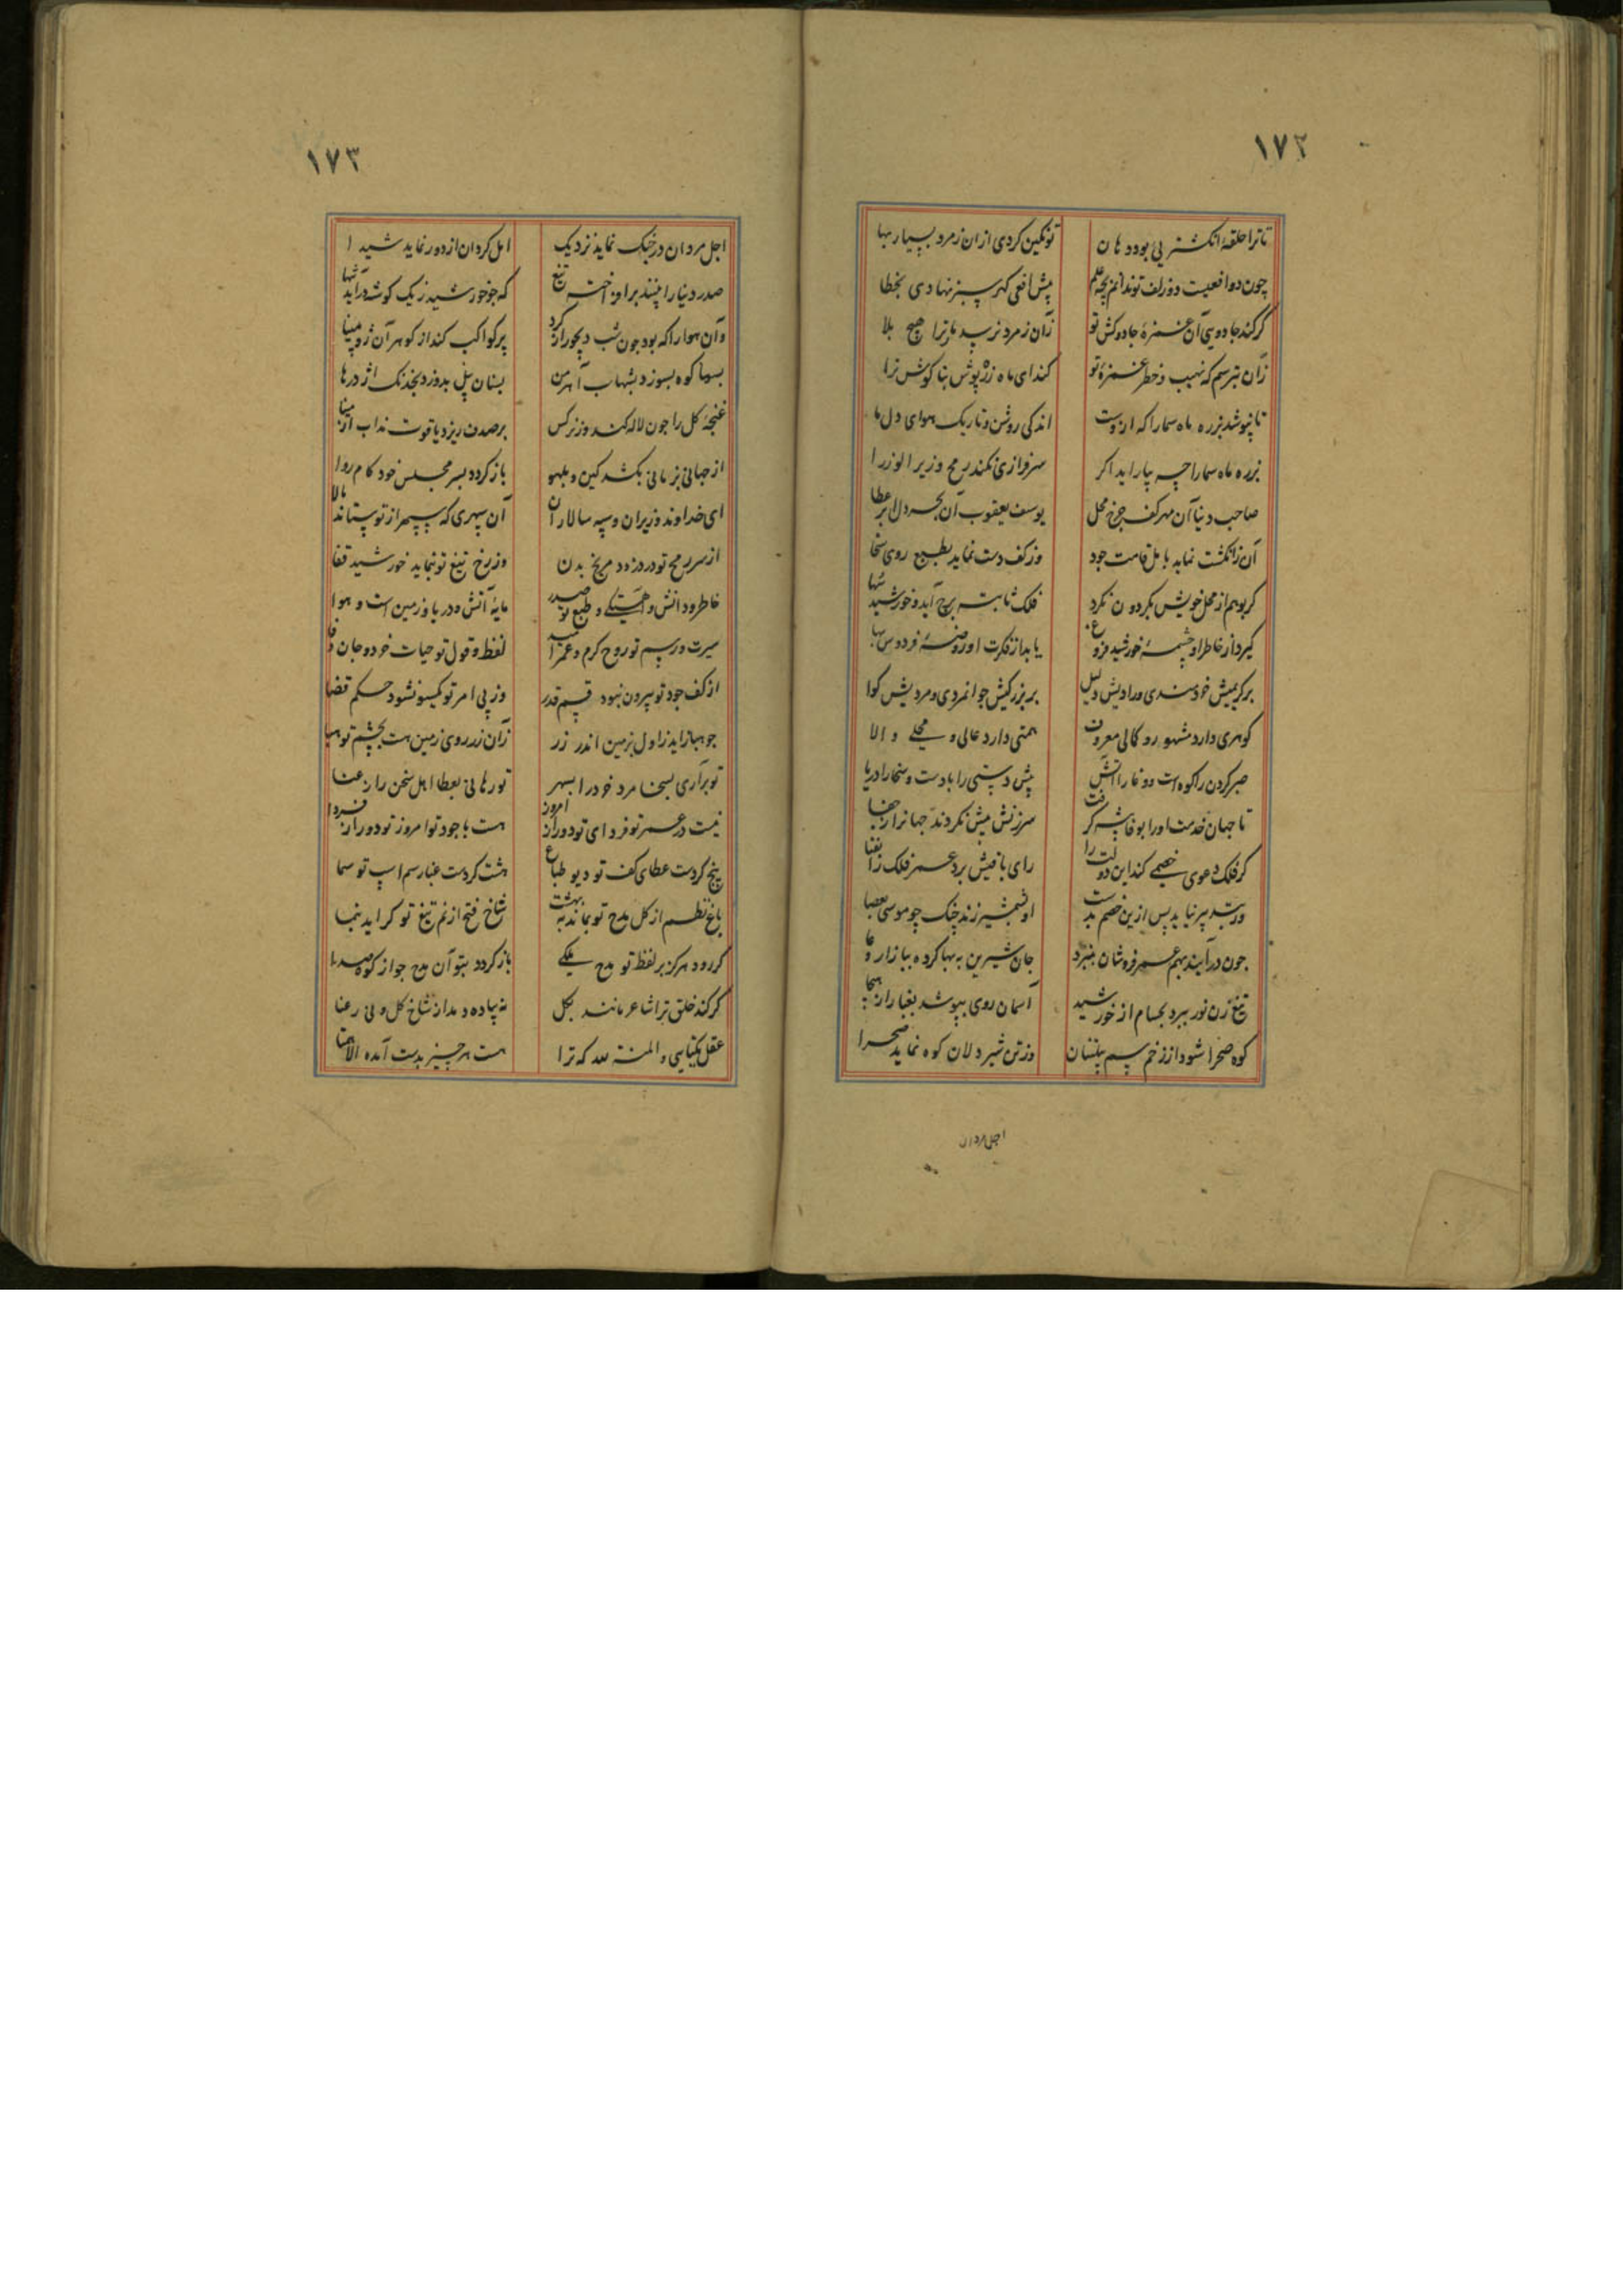 ١٧٢
تا ترا حلقهٔ انکشتریی بود دهان
تو نکین کردی ازان زمرد بسیار بها
چون دو افعیست دو زلف تو ندانم بچه علم
پیش افعی کهر سبز نهادی بخطا
کر کند جادویی آن غمزهٔ جادوکش تو
زان زمرد نرسد مر ترا هیچ بلا
زان بترسم که نهیب و خطر غمزهٔ تو
کند ای ماه زره پوش بنا کوش ترا
تا بپوشد بزره ماه سما را که ازوست
اندکی روشن و تاریک هوای دل ما
بزره ماه سما را چه بیاراید اکر
سرفرازی نکند رمح وزیر الوزرا
صاحب دنیا آن مهر کف چرخ محل
یوسف یعقوب آن بحر دل ابر عطا
آن ز انکشت نماید بامل قامت جود
وز کف دست نماید بطمع روی سخا
کر بوهم از محل خویش بکردون نکرد
فلک ثابته برج آید و خورشید سها
کیرد از خاطر او چشمهٔ خورشید فروغ
یابد از فکرت او روضهٔ فردوس بها
بر کریمیش خردمندی و رادیش دلیل
بر بزرکیش جوانمردی و مردیش کوا
کوهری دارد مشهور و کمالی معروف
همتی دارد عالی و محلی والا
صبر کردن را کوه است و وغا را آتش
پیش دستی را بادست و سخا را دریا
تا جهان خدمت او را بوفا پیش کرفت
سرزنش بیش نکردند جهانرا ز جفا
کر فلک دعوی خصمی کند این دولت را
رای باقیش برد عمر فلک را بفنا
ور شب سر نیاید پس ازین خصم بدست
او بشمشیر زند چنک چو موسی بعصا
چون درآیند بهم عمر فروشان بنبرد
جان شیرین به بها کرده ببازار وغا
تیغ زن نور ببرد بحسام از خورشید
آسمان روی بپوشد بغبار از هیجا
کوه صحرا شود از زخم سم پیلتنان
وز تن شیر دلان کوه نماید صحرا
اجل مردان
١٧٣
اجل مردان در جنک نماید نزدیک
امل کردان از دور نماید شیدا
صدر دنیا را بینند برافراخته تیغ
که چو خورشید ز یک کوشه درآید تنها
وآن هوا را که بود چون شب دیجور از کرد
پر کواکب کند از کوهر آن زو مینا
بسها کوه بسوزد بشهاب آهرمن
بسنان پیل بدوزد بخدنک اژدرها
غنچهٔ کل را چون لاله کند وز نرکس
بر صدف ریزد یاقوت مذاب از مینا
از جهانی بزمانی بکشد کین و بلهو
باز کردد بسر مجلس خود کام روا
ای خداوند وزیران و سپه سالاران
آن سپهری که سپهر از تو ستاند بالا
از سر رمح تو در دزدد مریخ بدن
وز رخ تیغ تو بنماید خورشید قفا
خاطر و دانش و آهستکی و طبع تو صدر
مایهٔ آتش و دریا و زمین است و هوا
سیرت و رسم تو روح کرم و عمر امید
لفظ و قول تو حیات خرد و جان وفا
از کف جود تو بیرون نبود قسم قدر
وز پی امر تو یکسو نشود حکم قضا
جو بها زاید ز اول بزمین اندر زر
زان زر روی زمین هست بچشم تو هبا
تو برآری بسخا مرد خرد را بسپهر
تو رهانی بعطا اهل سخن را ز عنا
نیست در عمر تو فردای تو دور از امروز
هست با جود تو امروز تو دور از فردا
پنج کردت عطای کف تو دیو طباع
هشت کردت غبار سم اسپ تو سما
باغ نظم از کل مدح تو بماند به بهشت
شاخ فتح از نم تیغ تو کراید بنما
کر رود هرکز بر لفظ تو مدح ملکی
باز کردد بتو آن مدح چو از کوه صدا
کر کند خلق ترا شاعر مانند بکل
نه پیاده دمد از شاخ کل و نی رعنا
عقل یکتایی و المنة لله که ترا
هست هر چیز بدست آمده الا همتا